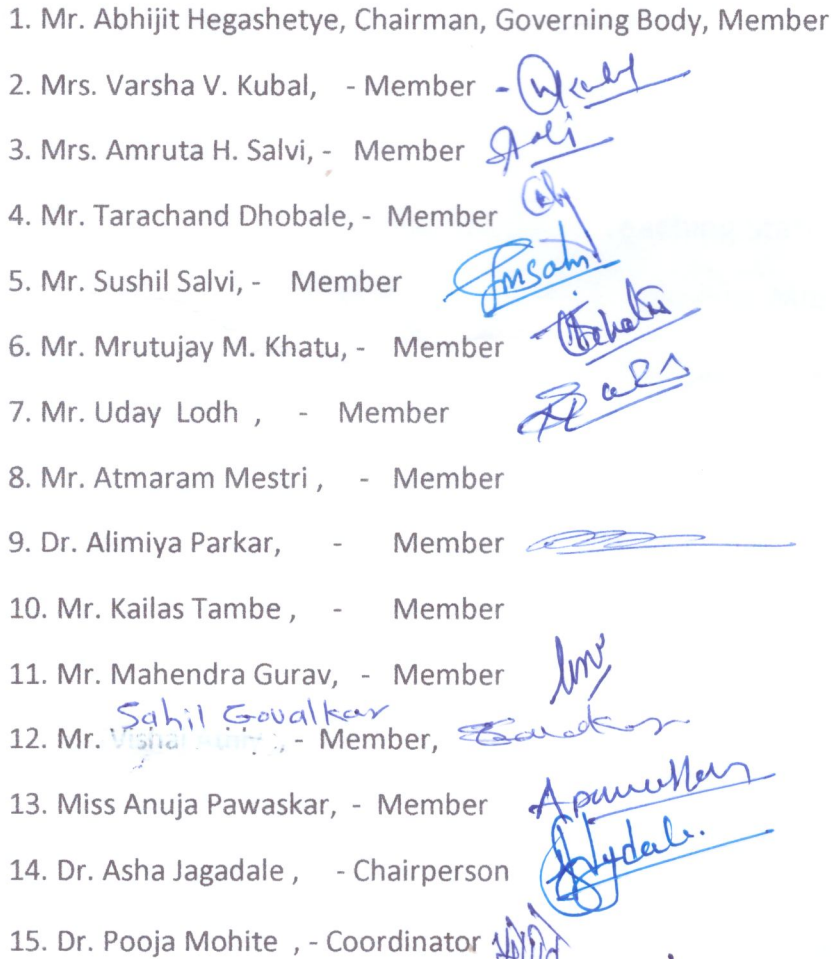 1. Mr. Abhijit Hegashetye, Chairman, Governing Body, Member
2. Mrs. Varsha V. Kubal, - Member -
3. Mrs. Amruta H. Salvi, - Member
4. Mr. Tarachand Dhobale, - Member
5. Mr. Sushil Salvi, - Member
6. Mr. Mrutujay M. Khatu, - Member
7. Mr. Uday Lodh , - Member
8. Mr. Atmaram Mestri , - Member
9. Dr. Alimiya Parkar, - Member
10. Mr. Kailas Tambe , - Member
11. Mr. Mahendra Gurav, - Member
Sahil Govalkar
12. Mr. Vishal , - Member,
13. Miss Anuja Pawaskar, - Member
14. Dr. Asha Jagadale , - Chairperson
15. Dr. Pooja Mohite , - Coordinator